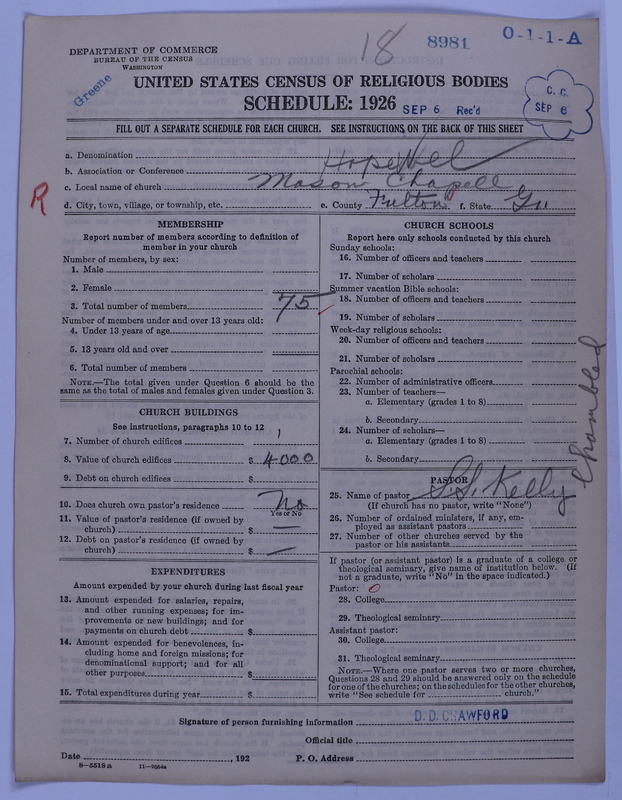 18 8981 O-1-1-A
DEPARTMENT OF COMMERCE
BUREAU OF THE CENSUS
WASHINGTON
Greene
UNITED STATES CENSUS OF RELIGIOUS BODIES
C. C.
SEP 6
SCHEDULE: 1926 SEP 6 Rec'd
FILL OUT A SEPARATE SCHEDULE FOR EACH CHURCH. SEE INSTRUCTIONS ON THE BACK OF THIS SHEET
a. Denomination
b. Association or Conference Hopewell
c. Local name of church Mason Chapell
R
d. City, town, village, or township, etc. e. County Fulton f. State Ga
MEMBERSHIP
Report number of members according to definition of
member in your church
Number of members, by sex:
1. Male
2. Female
3. Total number of members 75
Number of members under and over 13 years old:
4. Under 13 years of age
5. 13 years old and over
6. Total number of members
NOTE.—The total given under Question 6 should be the
same as the total of males and females given under Question 3.
CHURCH BUILDINGS
See instructions, paragraphs 10 to 12
7. Number of church edifices 1
8. Value of church edifices $ 4000
9. Debt on church edifices $
10. Does church own pastor's residence No
Yes or No
11. Value of pastor's residence (if owned by
church) $ —
12. Debt on pastor's residence (if owned by
church) $ —
EXPENDITURES
Amount expended by your church during last fiscal year
13. Amount expended for salaries, repairs,
and other running expenses; for im-
provements or new buildings; and for
payments on church debt $
14. Amount expended for benevolences, in-
cluding home and foreign missions; for
denominational support; and for all
other purposes $
15. Total expenditures during year $
CHURCH SCHOOLS
Report here only schools conducted by this church
Sunday schools:
16. Number of officers and teachers
17. Number of scholars
Summer vacation Bible schools:
18. Number of officers and teachers
19. Number of scholars
Week-day religious schools:
20. Number of officers and teachers
21. Number of scholars
Parochial schools:
22. Number of administrative officers
23. Number of teachers—
a. Elementary (grades 1 to 8)
b. Secondary
24. Number of scholars—
a. Elementary (grades 1 to 8)
b. Secondary
PASTOR
25. Name of pastor Kelly
(If church has no pastor, write "None")
26. Number of ordained ministers, if any, em-
ployed as assistant pastors
27. Number of other churches served by the
pastor or his assistants
If pastor (or assistant pastor) is a graduate of a college or
theological seminary, give name of institution below. (If
not a graduate, write "No" in the space indicated.)
Pastor: 0
28. College
29. Theological seminary
Assistant pastor:
30. College
31. Theological seminary
NOTE.—Where one pastor serves two or more churches,
Questions 28 and 29 should be answered only on the schedule
for one of the churches; on the schedules for the other churches,
write "See schedule for church."
Signature of person furnishing information D. D. CRAWFORD
Official title
Date , 192 P. O. Address
8—5518 a 11—9554a